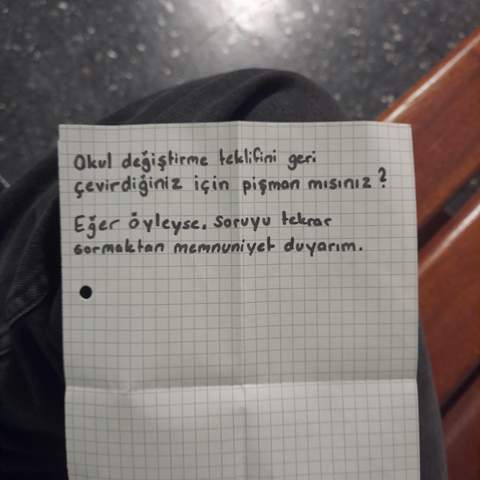 Okul değiştirme teklifini geri
çevirdiğiniz için pişman mısınız?
Eğer öyleyse, soruyu tekrar
sormaktan memnuniyet duyarım.